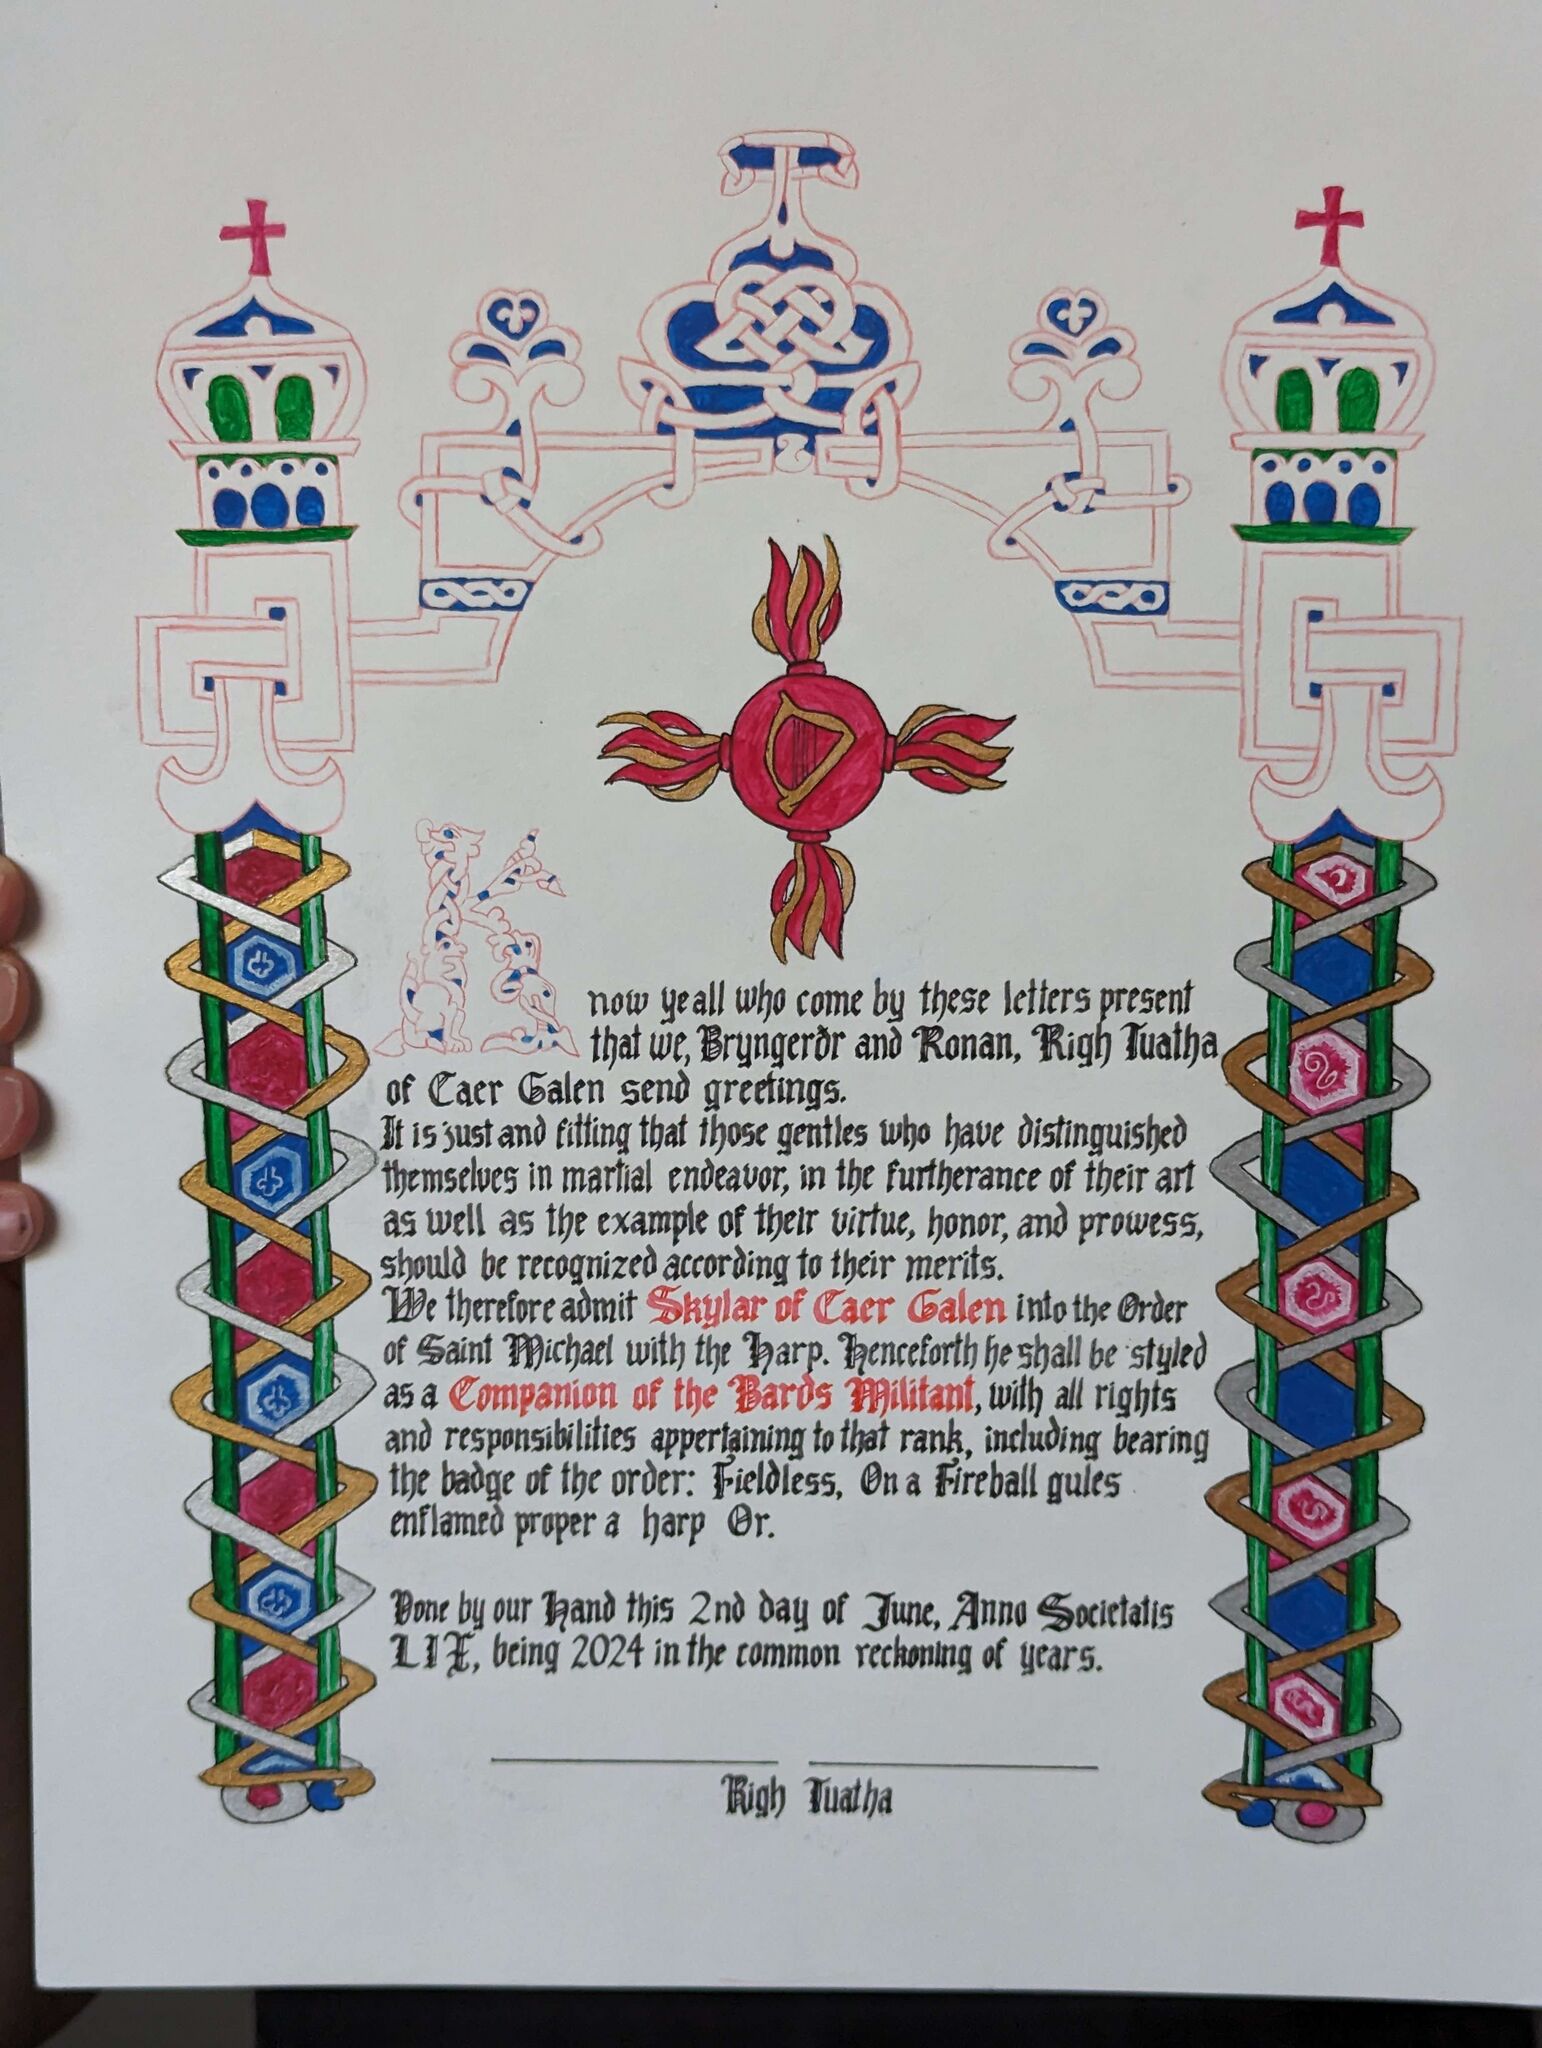 Know ye all who come by these letters present
that we, Bryngerðr and Ronan, Righ Tuatha
of Caer Galen send greetings.
It is just and fitting that those gentles who have distinguished
themselves in martial endeavor, in the furtherance of their art
as well as the example of their virtue, honor, and prowess,
should be recognized according to their merits.
We therefore admit Skylar of Caer Galen into the Order
of Saint Michael with the Harp. Henceforth he shall be styled
as a Companion of the Bards Militant, with all rights
and responsibilities appertaining to that rank, including bearing
the badge of the order: Fieldless, On a Fireball gules
enflamed proper a harp Or.
Done by our Hand this 2nd day of June, Anno Societatis
LIX, being 2024 in the common reckoning of years.
Righ Tuatha